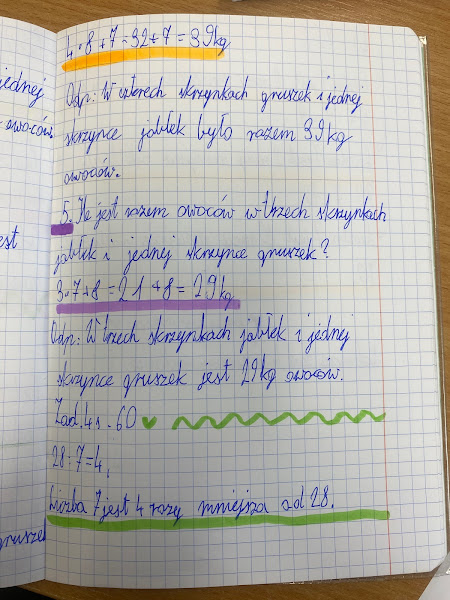 4 · 8 + 7 = 32 + 7 = 39 kg
Odp.: W czterech skrzynkach gruszek i jednej
skrzynce jabłek było razem 39 kg
owoców.
5. Ile jest razem owoców w trzech skrzynkach
jabłek i jednej skrzynce gruszek?
3 · 7 + 8 = 21 + 8 = 29 kg
Odp.: W trzech skrzynkach jabłek i jednej
skrzynce gruszek jest 29 kg owoców.
Zad. 4 s. 60
28 : 7 = 4.
Liczba 7 jest 4 razy mniejsza od 28.
jednej
owoców.
est
gruszek